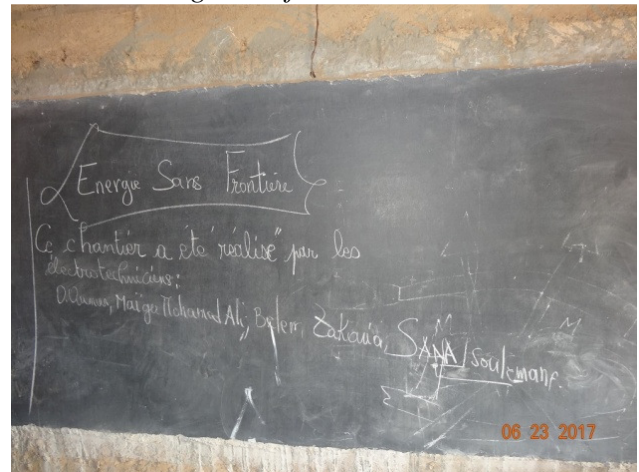 Energie Sans Frontière
Ce chantier a été réalisé par les
électrotechniciens:
Maïga Mohamed Ali, Zakaria SANA Soulemane.
06 23 2017